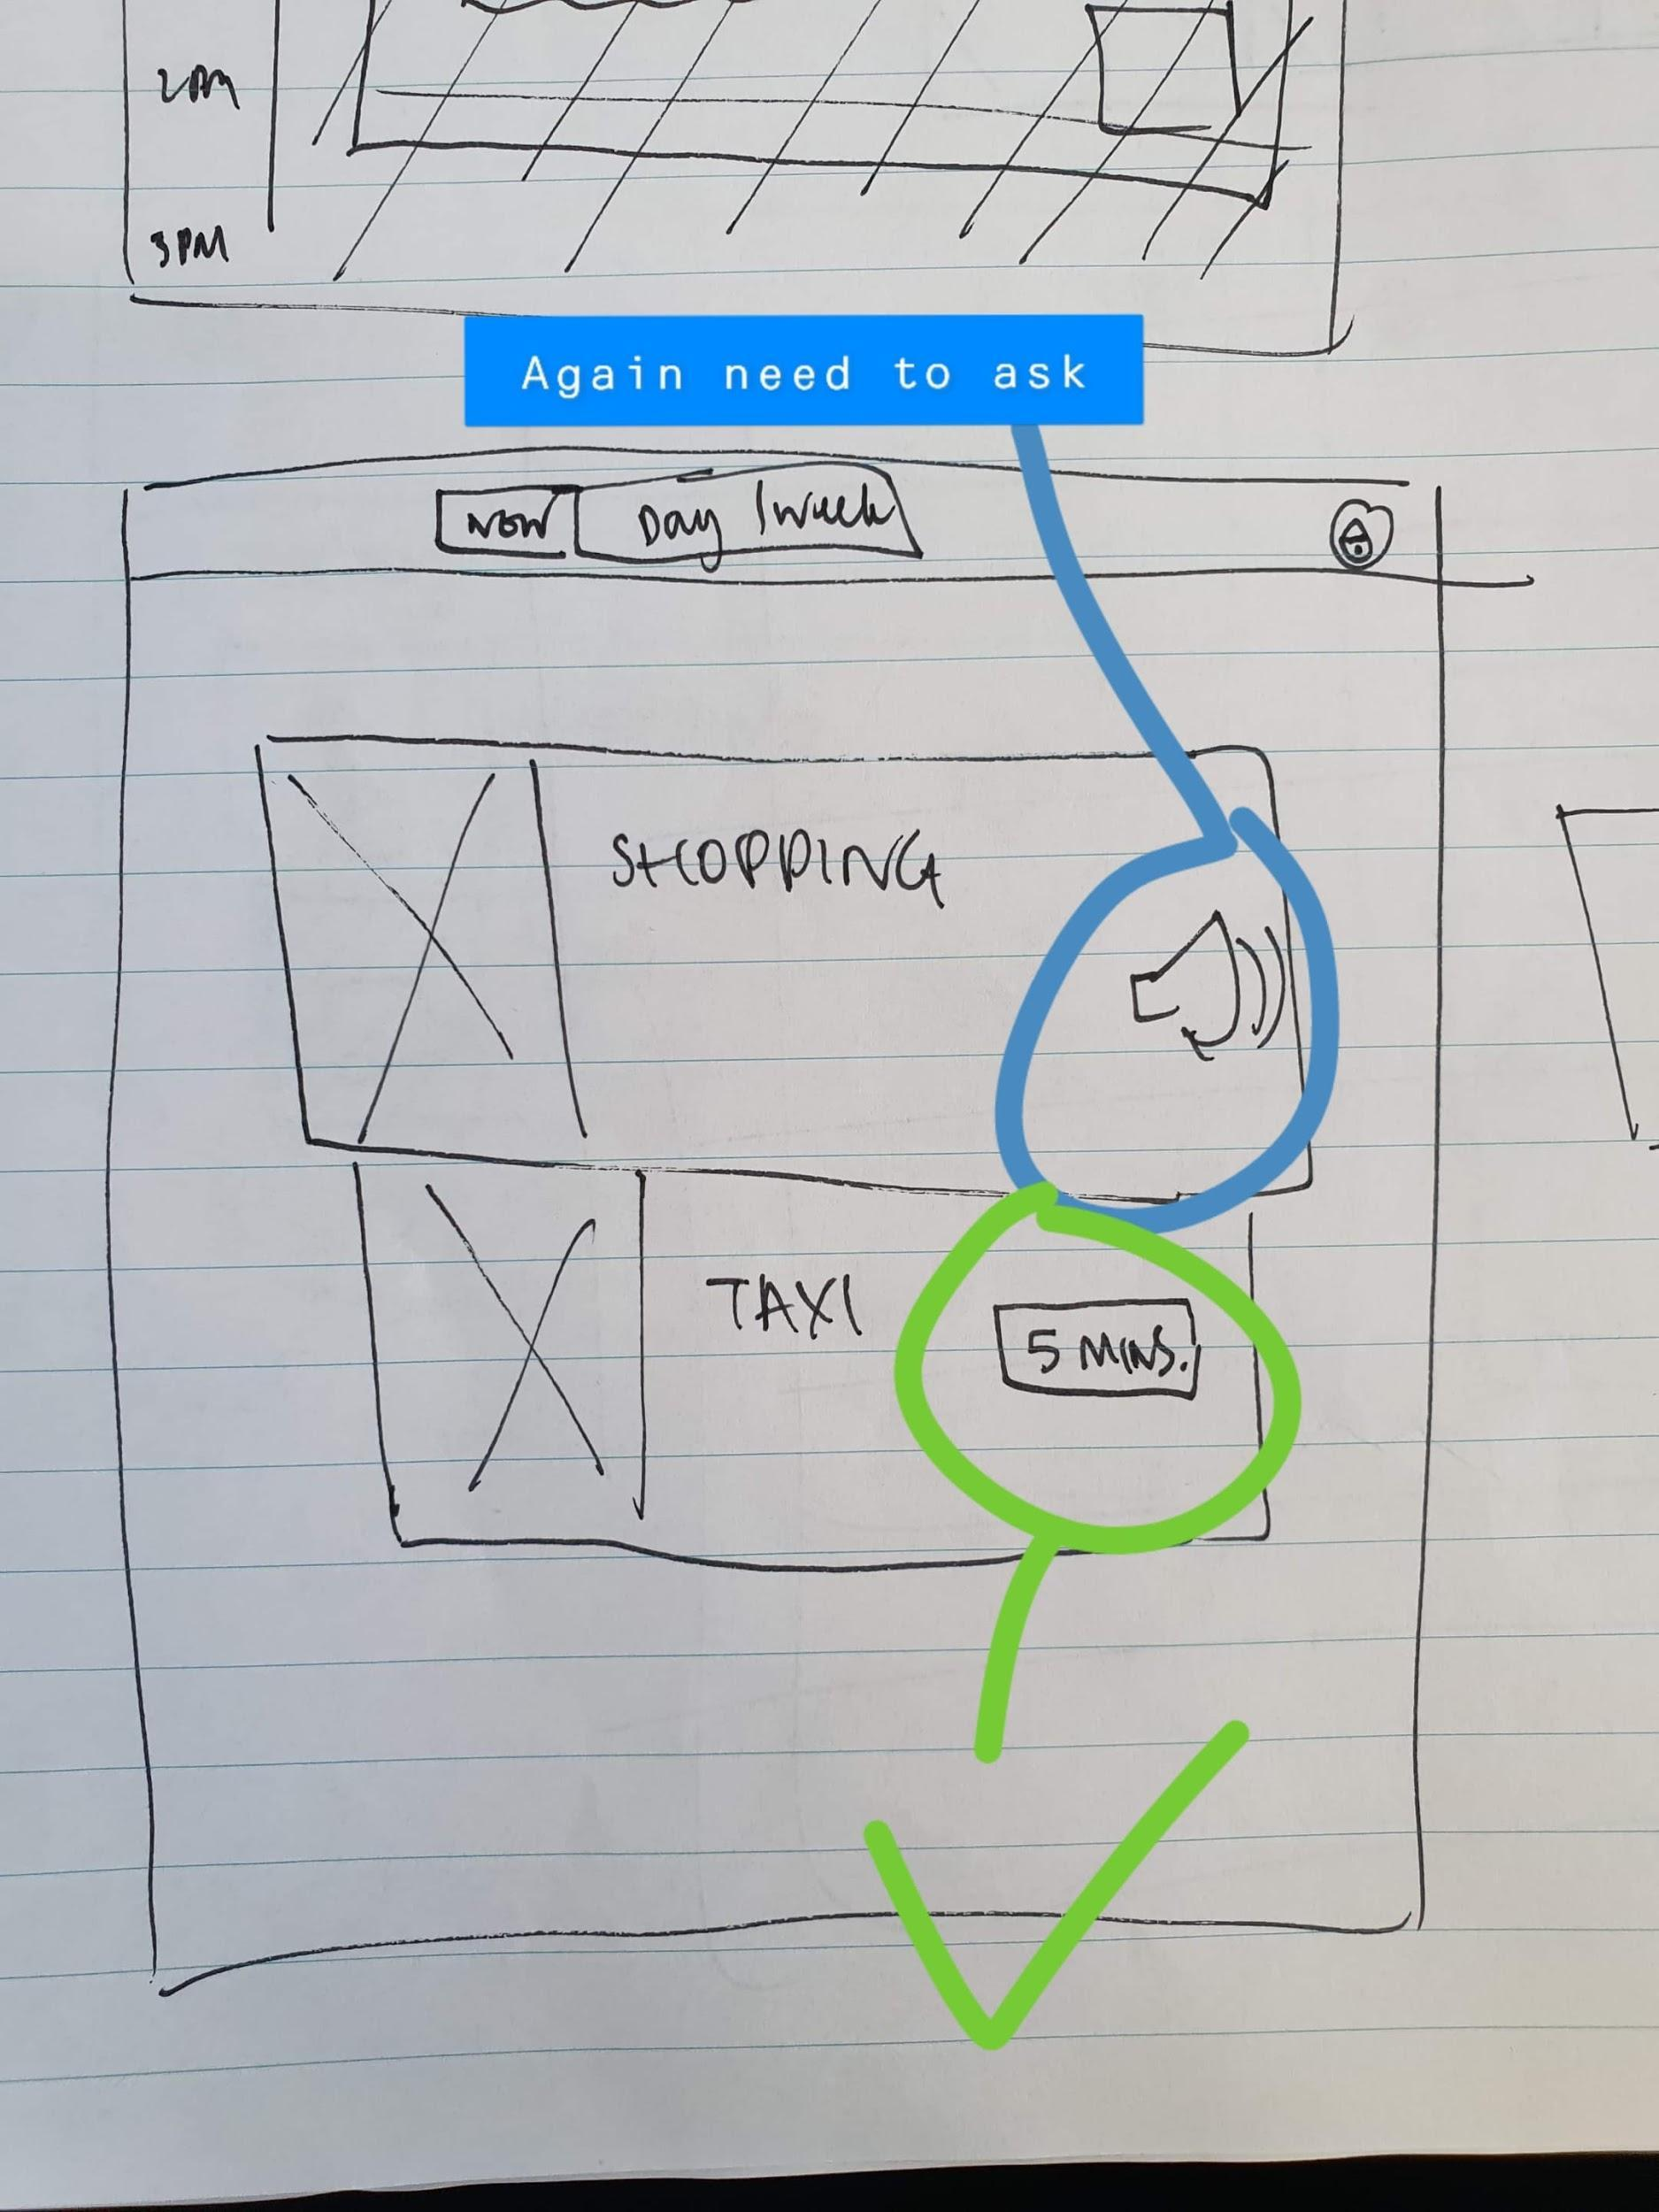 2PM
3PM
Again need to ask
NOW Day /week
SHOPPING
TAXI
5 MINS.